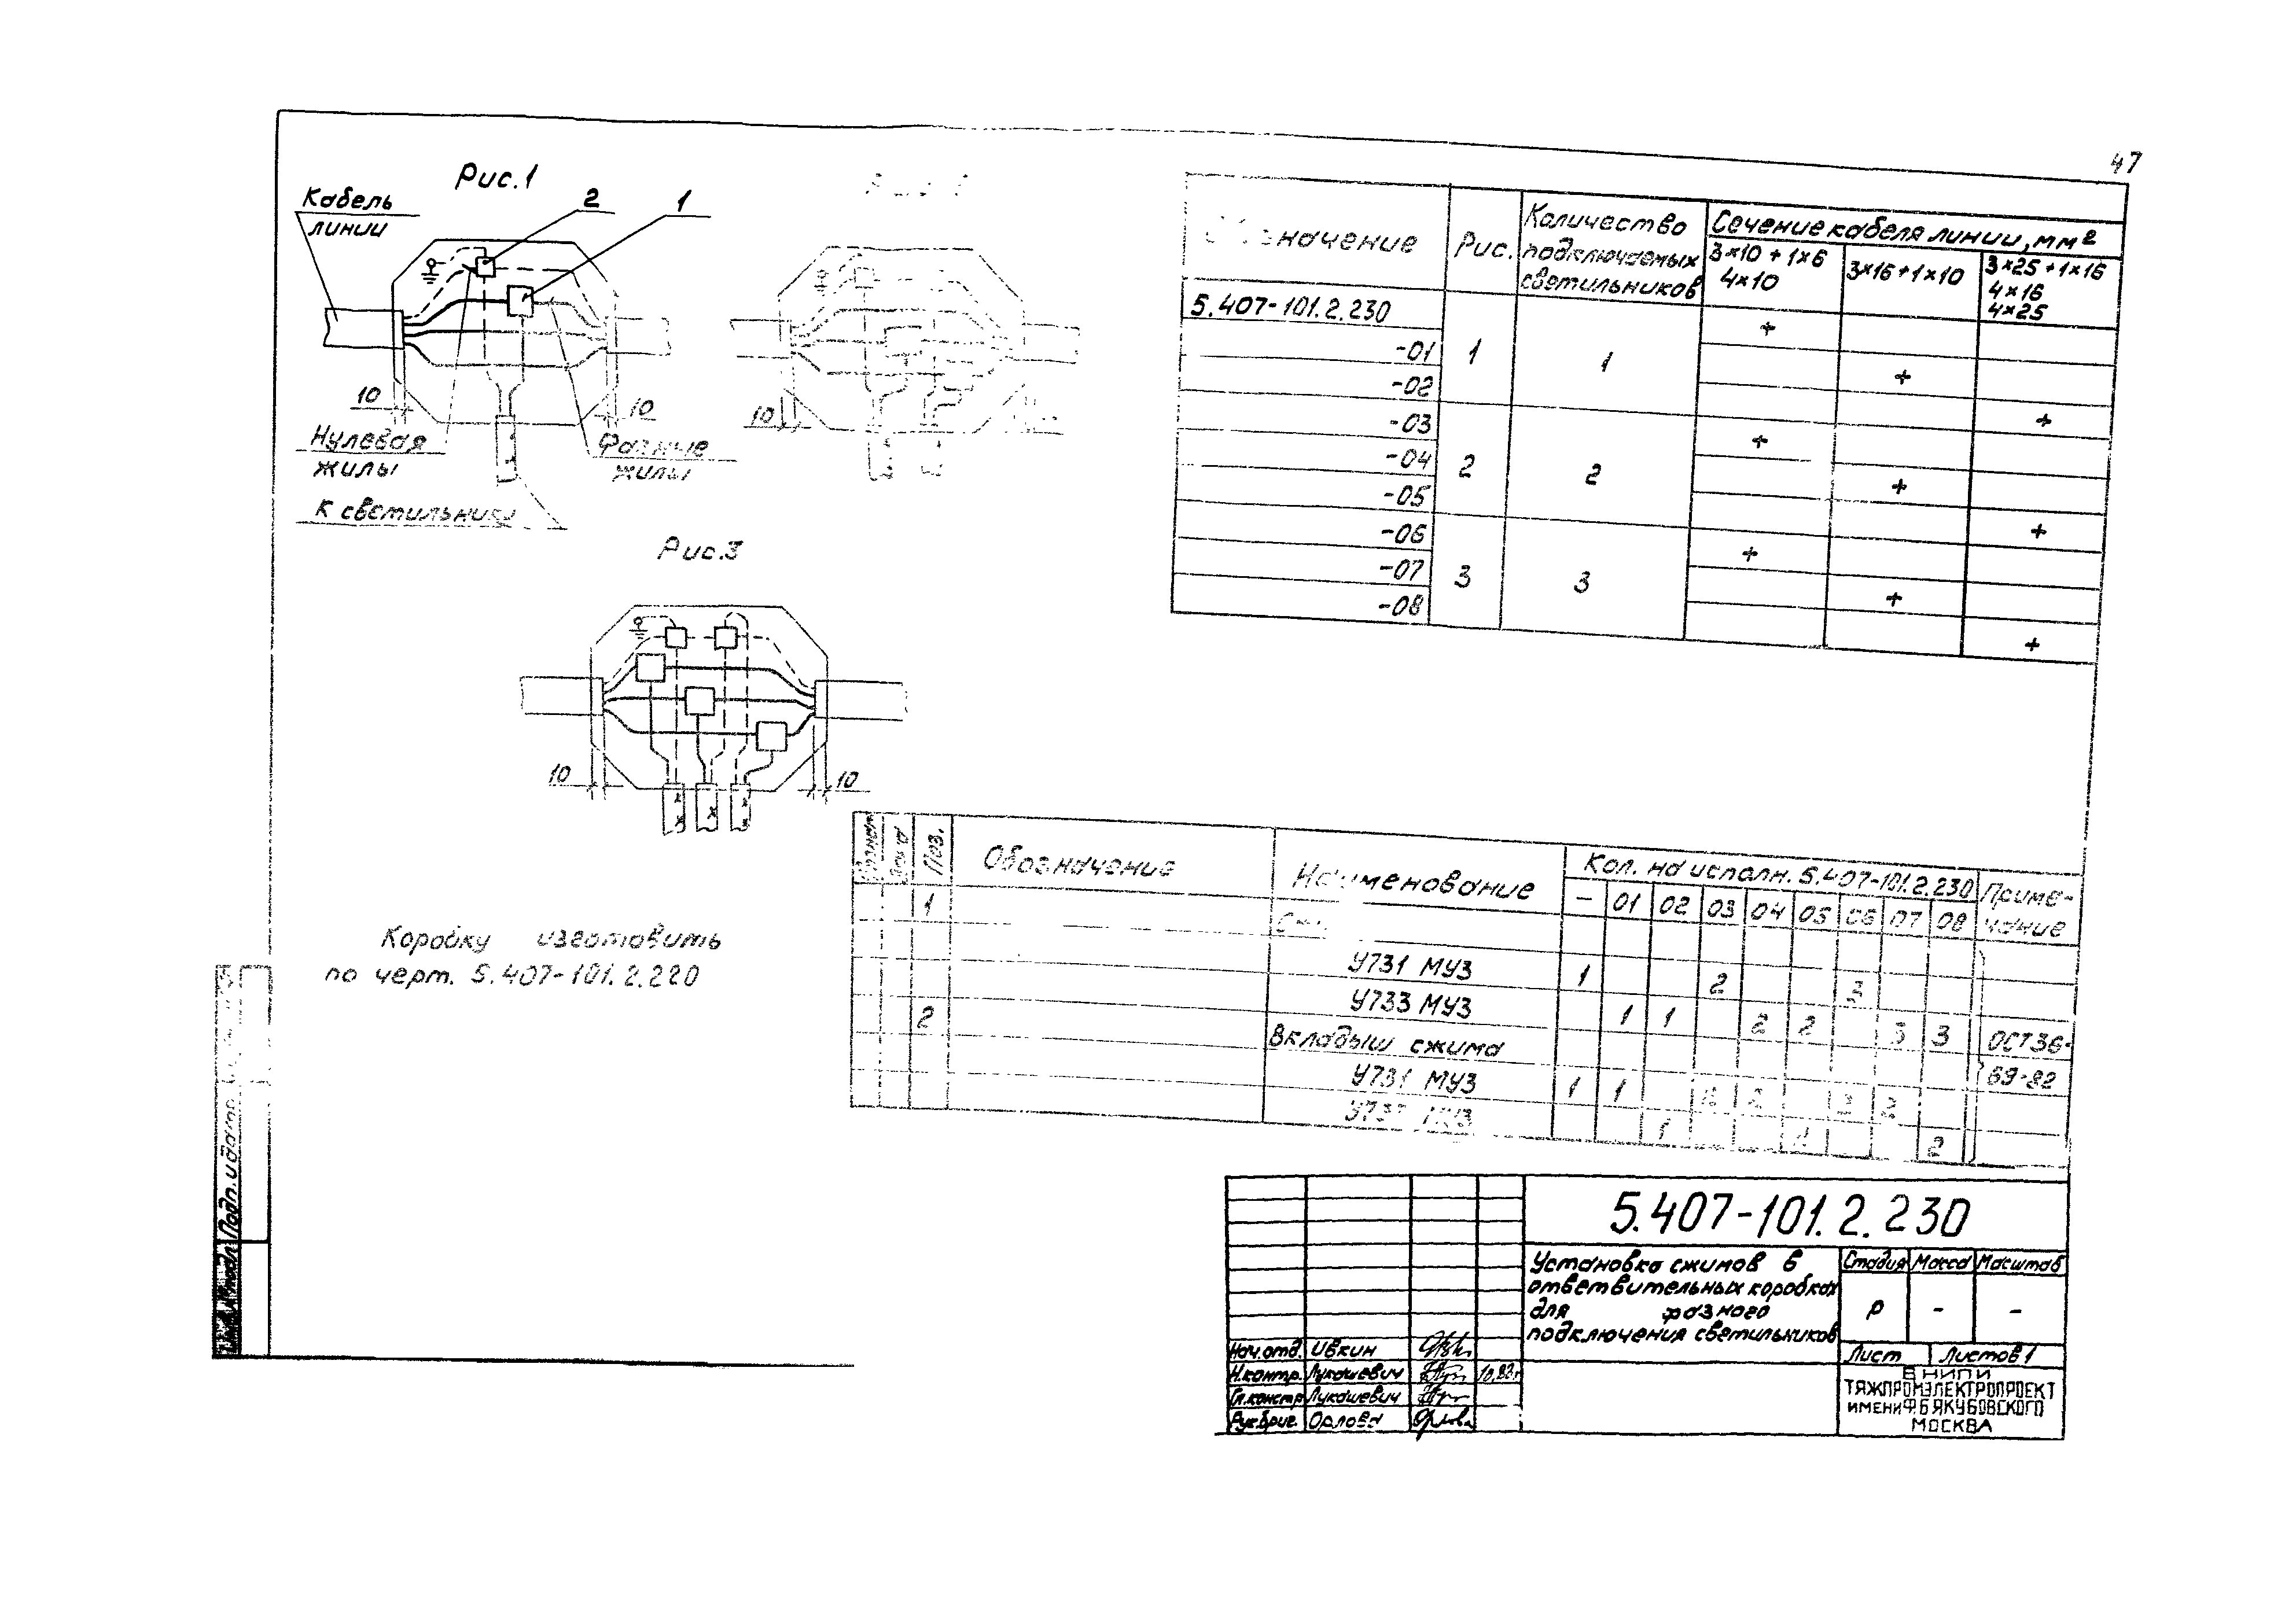 47
Рис.1
Кабель
линии
2
1
10
10
Нулевая
жилы
Фазные
жилы
К светильнику
10
Рис.3
10
10
Коробку изготовить
по черт. 5.407-101.2.220
Рис.
Количество
подключаемых
светильников
Сечение кабеля линии, мм²
3×10 + 1×6
4×10
3×16 + 1×10
3×25 + 1×16
4×16
4×25
5.407-101.2.230
1
1
+
-01
+
-02
+
-03
2
2
+
-04
+
-05
+
-06
3
3
+
-07
+
-08
+
Поз.
Обозначение
Наименование
Кол. на исполн. 5.407-101.2.230
Приме-
чание
- 01 02 03 04 05 06 07 08
1
У731 МУ3 1 2 3
У733 МУ3 1 1 2 2 3 3
ОСТ36-
69-82
2
Вкладыш сжима
У731 МУ3 1 1
1 2
5.407-101.2.230
Установка сжимов в
ответвительных коробках
для фазного
подключения светильников
Стадия Масса Масштаб
Р - -
Лист Листов 1
Нач.отд. Ивкин
Н.контр. Лукашевич
Гл.констр Лукашевич
Рук.бриг. Орлова
ВНИПИ
ТЯЖПРОМЭЛЕКТРОПРОЕКТ
ИМЕНИ Ф.Б.ЯКУБОВСКОГО
МОСКВА
Подп. и дата